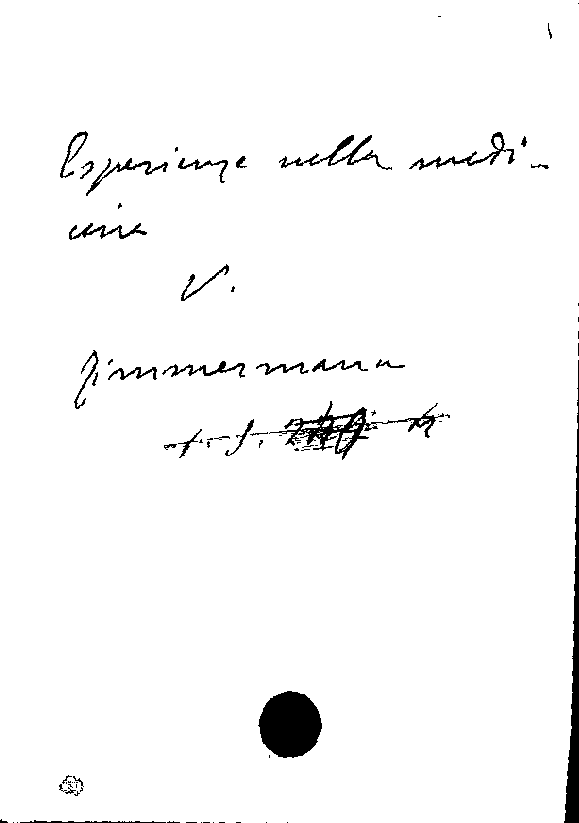 Esperienze nella medi-
cina
V.
Zimmermann